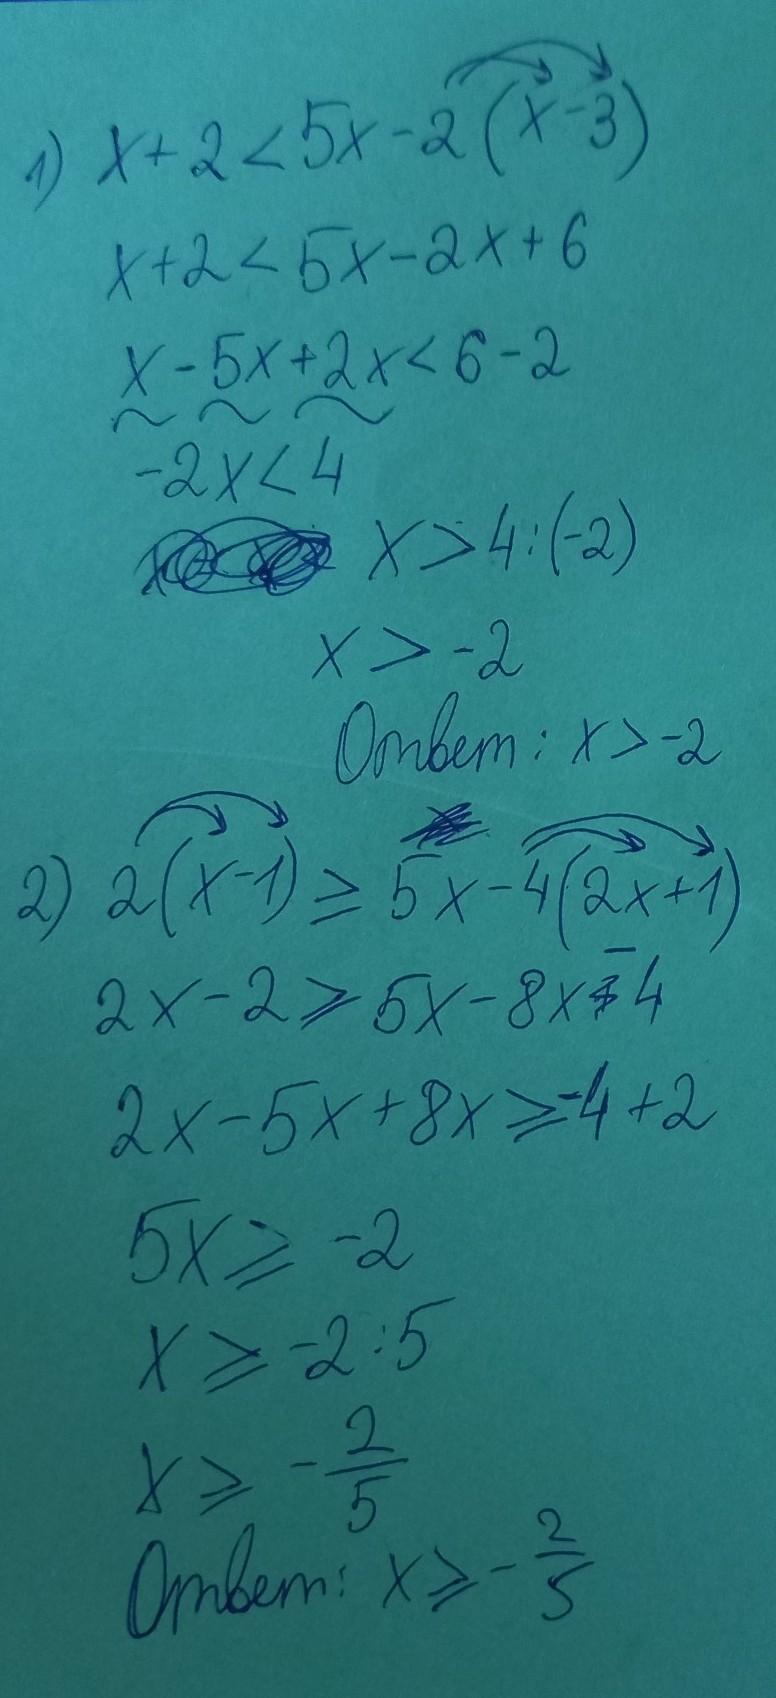 1) x+2<5x-2(x-3)
x+2<5x-2x+6
x-5x+2x<6-2
-2x<4
x>4:(-2)
x>-2
Ответ: x>-2
2) 2(x-1)≥5x-4(2x+1)
2x-2≥5x-8x-4
2x-5x+8x≥-4+2
5x≥-2
x≥-2:5
x≥-2/5
Ответ: x≥-2/5